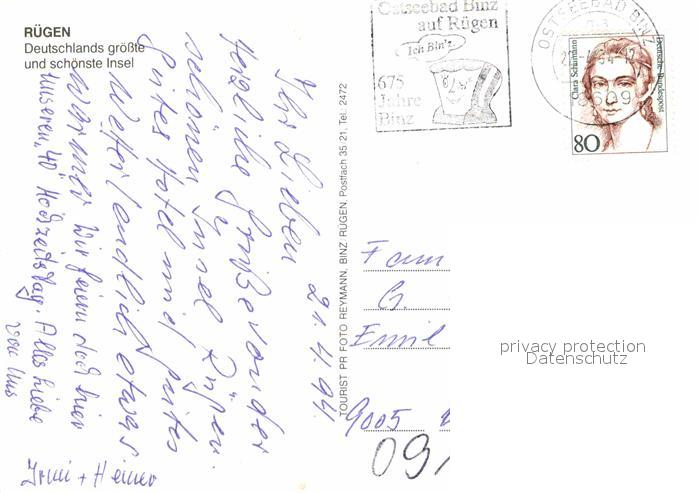 RÜGEN
Deutschlands größte
und schönste Insel
21.4.94
Ihr Lieben
Herzliche Grüße von der
schönen Insel Rügen.
Gutes Hotel mit gutes
Wetter endlich etwas
Wärmer Wir feiern doch hier
unseren "40" Hochzeitstag. Alles liebe
von uns
Irmi + Heiner
TOURIST PR FOTO REYMANN, BINZ RÜGEN, Postfach 35/21, Tel. 2472
Ostseebad Binz
auf Rügen
Ich Bin'z
675
Jahre
Binz
OSTSEEBAD BINZ
8609
Clara Schumann
Deutsche Bundespost
80
Fam
G.
Emil
9005
09
privacy protection
Datenschutz